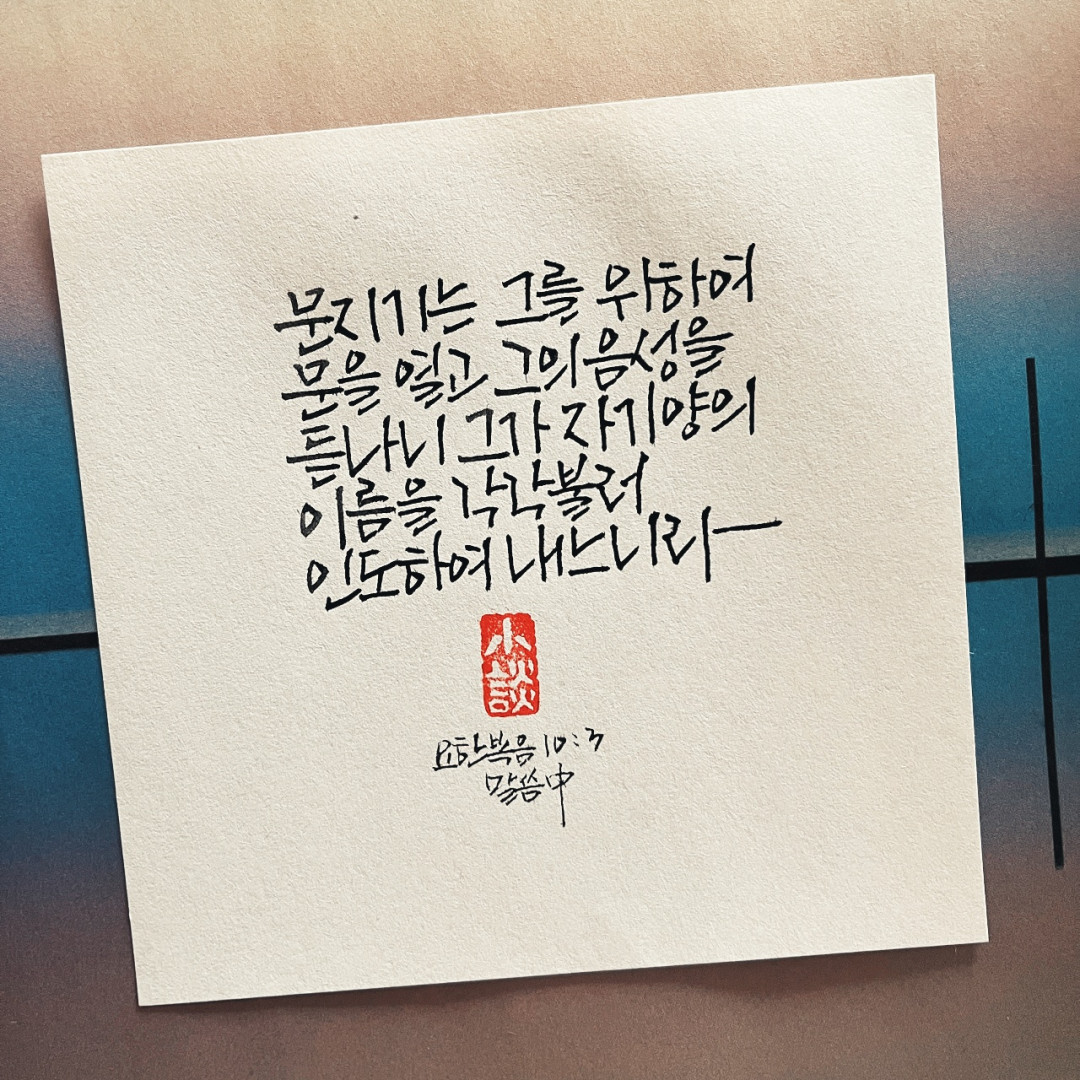 문지기는 그를 위하여
문을 열고 그의 음성을
듣나니 그가 자기 양의
이름을 각각 불러
인도하여 내느니라
小
談
요한복음 10:3
말씀中